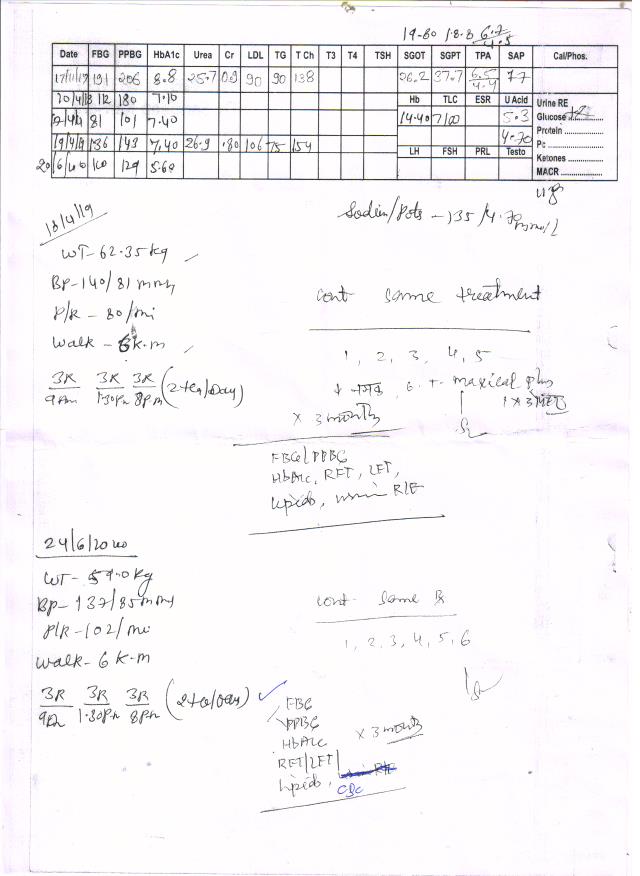 19.80 1.8:8 6.7/4.5
Date FBG PPBG HbA1c Urea Cr LDL TG T Ch T3 T4 TSH SGOT SGPT TPA SAP Cal/Phos.
17/11/17 191 206 8.8 25.7 0.9 90 90 138 26.2 37.7 6.5/4.4 77
20/4/18 112 180 7.10 Hb TLC ESR U Acid Urine RE
81 101 7.40 14.40 7100 5.3 Glucose
Protein
19/4/19 136 143 7.40 26.9 .80 106 75 154 4.70 Pc
LH FSH PRL Testo Ketones
20/6/20 110 129 5.60 MACR
18/4/19
Sodium/Pots - 135/4.79mmol/L
WT- 62.35kg
BP-140/81 mmHg
P/R - 80/mi
Walk - 6k.m
cont same treatment
1, 2, 3, 4, 5
3R/9Am 3R/1.30Pm 3R/8pm (2tea/Day)
↓ नमक, maxical plus
x 3 months
FBG/PPBG
HbA1c, RFT, LFT,
lipids, urine R/E
24/6/2020
WT- 59.0kg
BP- 137/85mmHg
P/R-102/mi
Walk- 6 K.m
cont same Rx
1, 2, 3, 4, 5, 6
3R/9Am 3R/1.30Pm 3R/8Pm (2tea/Day)
FBG
PPBG
HbA1c x 3 months
RFT/LFT/
lipids, CBC